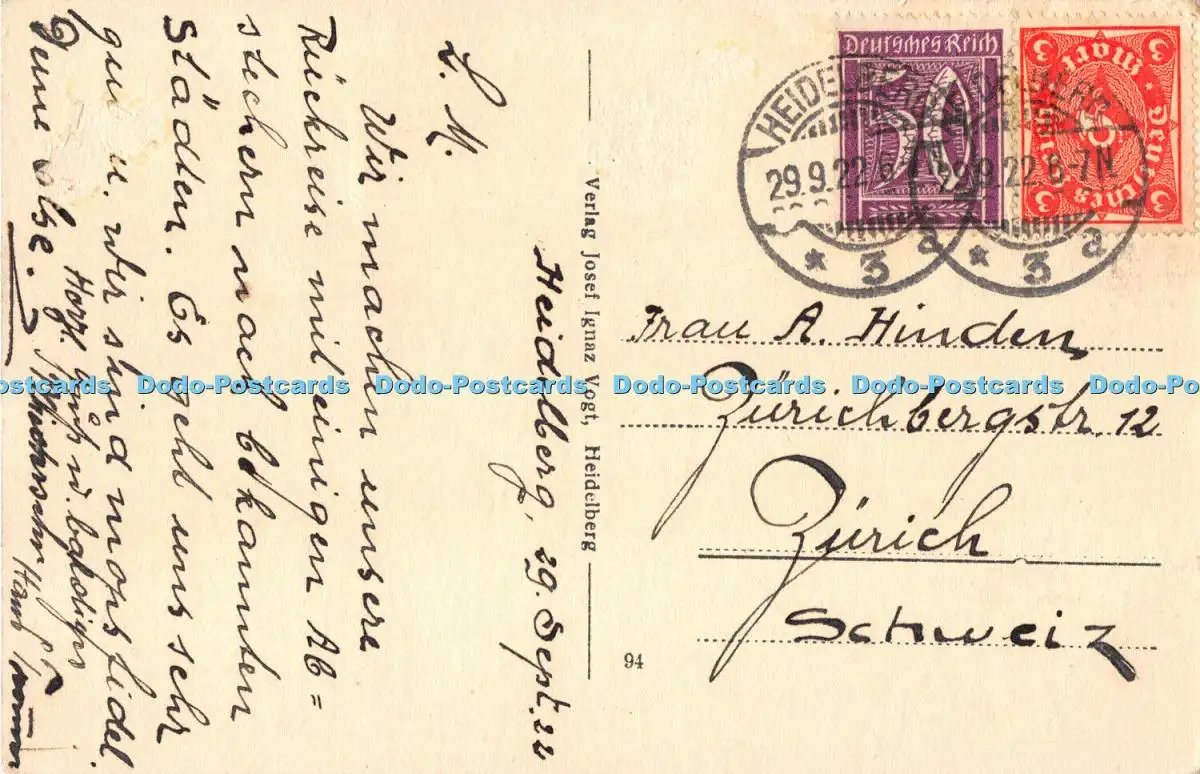 Heidelberg, 29. Sept. 22
L. M.
Wir machen unsere
Rückreise mit einigen Ab=
stechern nach bekannten
Städten. Es geht uns sehr
gut u. wir sind mopsfidel.
Deine Ilse.
Herzl. Gruß u. baldiges
Wiedersehn Hans
Verlag Josef Ignaz Vogt, Heidelberg
94
Deutsches Reich
Deutsches Reich
3 Mark 3
3 3
HEIDELBERG
29.9.22.6-7N
* 3 a
HEIDELBERG
29.9.22.6-7N
* 3 a
Frau A. Hinden,
Zürichbergstr. 12
Zürich
Schweiz
Dodo-Postcards Dodo-Postcards Dodo-Postcards Dodo-Postcards Dodo-Postcards